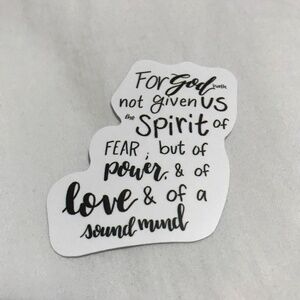 For God hath
not given us
the Spirit of
FEAR; but of
power, & of
love & of a
sound mind